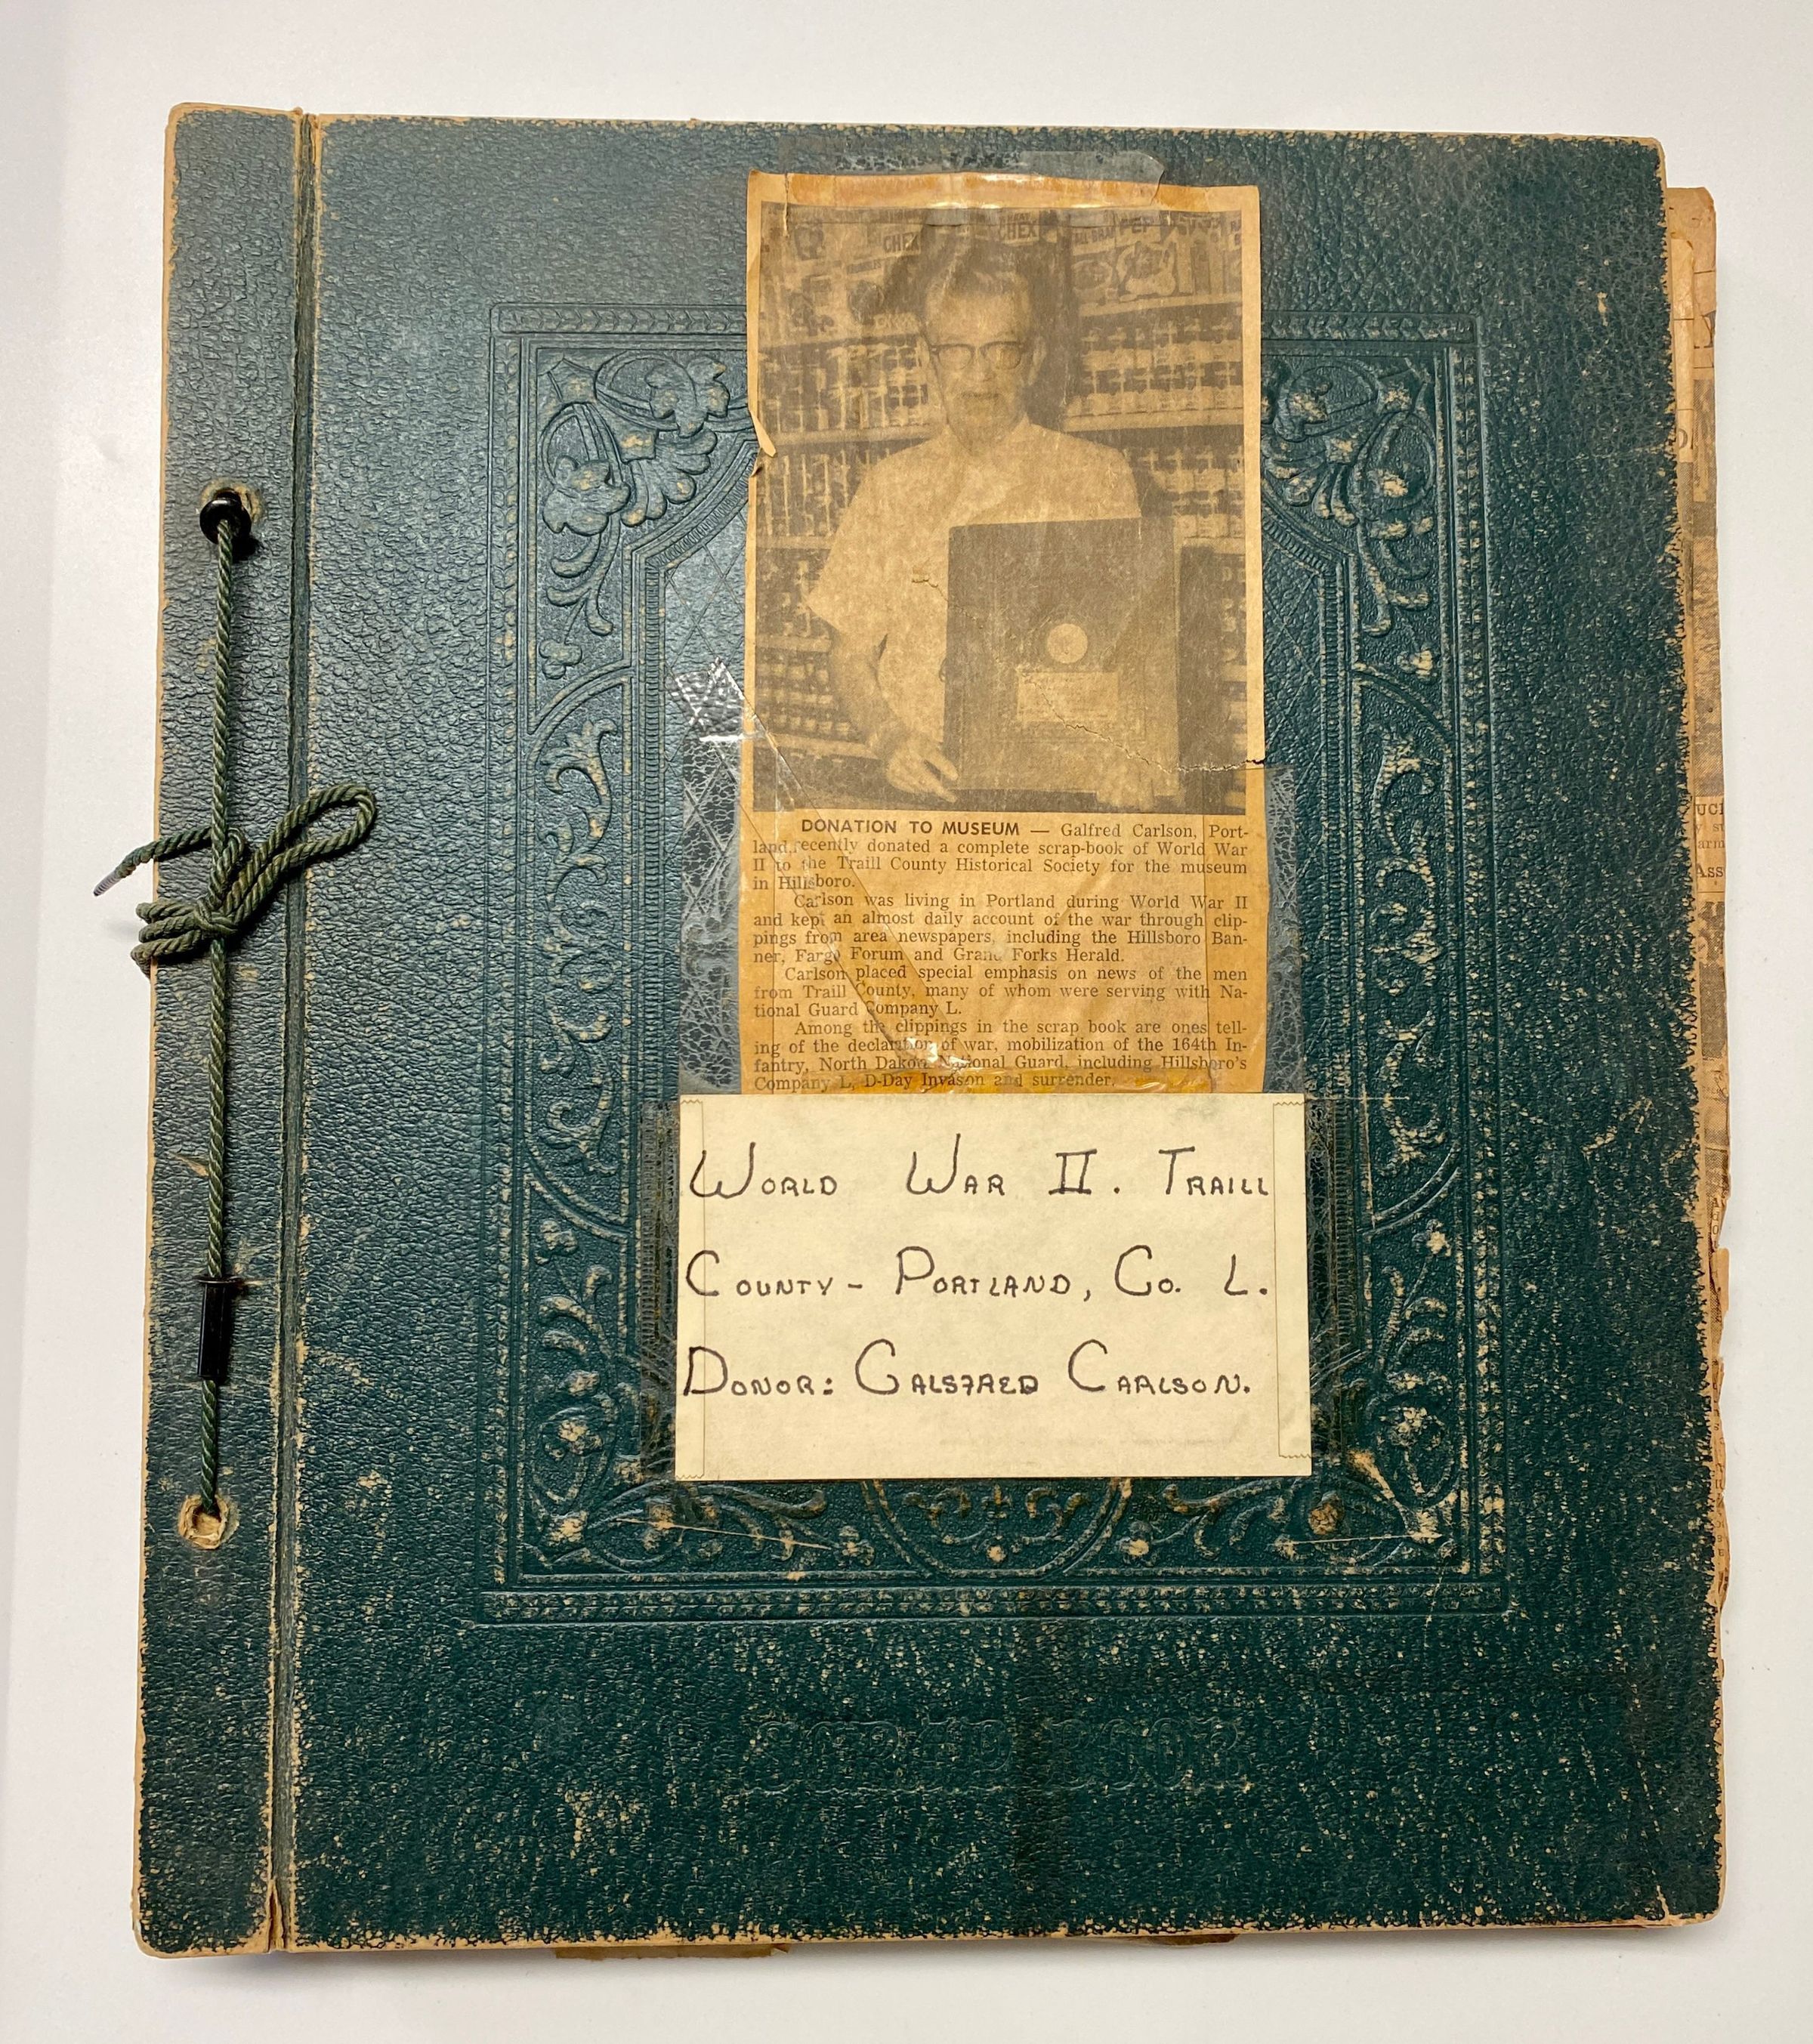 CHEX
CHEX
PEP
DONATION TO MUSEUM — Galfred Carlson, Port-
land, recently donated a complete scrap-book of World War
II to the Traill County Historical Society for the museum
in Hillsboro.
Carlson was living in Portland during World War II
and kept an almost daily account of the war through clip-
pings from area newspapers, including the Hillsboro Ban-
ner, Fargo Forum and Grand Forks Herald.
Carlson placed special emphasis on news of the men
from Traill County, many of whom were serving with Na-
tional Guard Company L.
Among the clippings in the scrap book are ones tell-
ing of the declaration of war, mobilization of the 164th In-
fantry, North Dakota National Guard, including Hillsboro's
Company L, D-Day Invason and surrender.
WORLD WAR II. TRAILL
COUNTY - PORTLAND, CO. L.
DONOR: GALSFRED CARLSON.
SCRAP BOOK